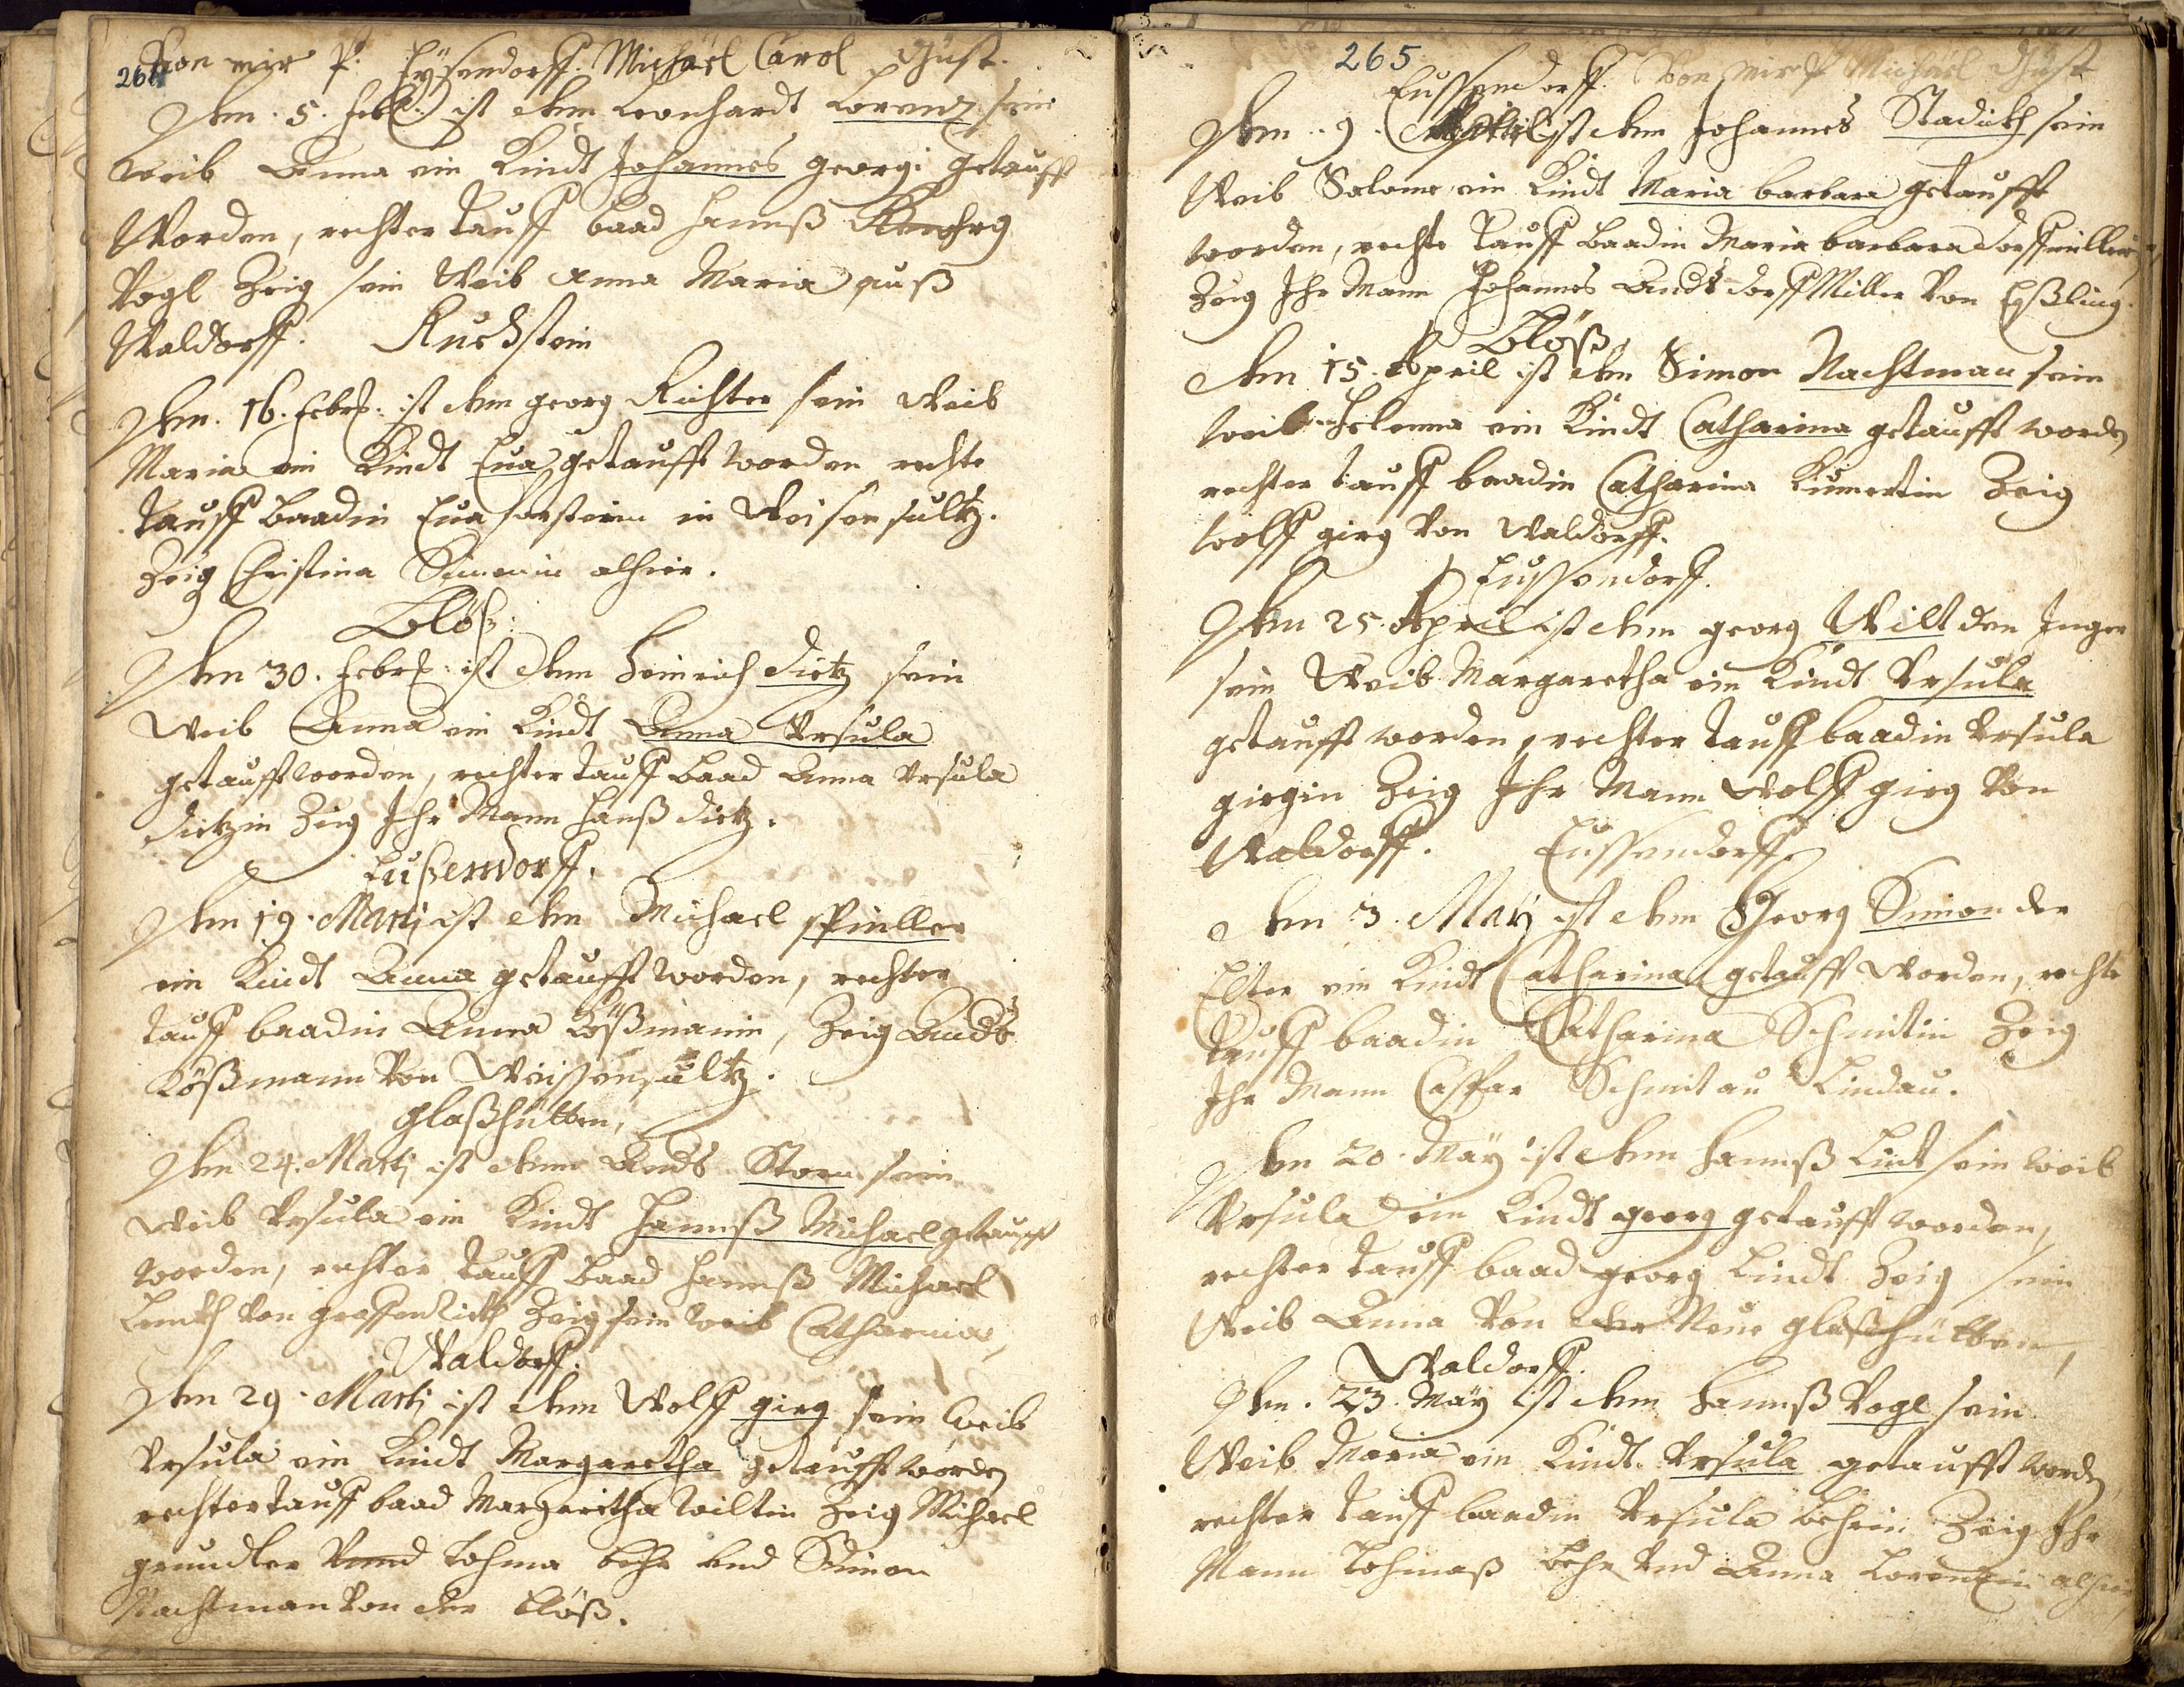 264
Von mir P. Eÿsendorff. Michael Carol Just.
Den. 5. Feb: ist dem Leonhardt Lorenz sein
Weib Anna ein Kindt Johannes Georgi getaufft
Worden, rechter tauff baad Hannß
Vogl Zeig sein Weib Anna Maria auß
Waldorff. Ruckstein
Den. 16. Febr: ist dem georg Richter sein Weib
Maria ein Kindt Eua getaufft worden rechte
tauff baadin Eua forsterin in Weisensultz.
Zeig Christina Simonin alhier.
Blöß:
Den 30. Febr: ist dem Heinrich Dietz sein
Weib Anna ein Kindt Anna Vrsula
getaufft worden, rechter tauff baad Anna Vrsula
Dietzin Zeig Ihr Mann Hanß Dietz.
Eußendorff.
Den 19. Martj ist dem Michael
ein Kindt Anna getaufft worden, rechter
tauff baadin Anna Lößmänin, Zeig Andₔ
Lößmann Von Weissensultz.
Glaßhütten,
Den 24. Martj ist dem Ands Storn sein
Weib Vrsula ein Kindt Hannß Michael getaufft
worden, rechter tauff baad Hannß Michael
Von Zeig sein Weib Catharina,
Waldorff.
Den 29. Martj ist dem Wolff girg sein Weib
Vrsula ein Kindt Margaretha getaufft worden
rechter tauff baad Margaretha Wiltin Zeig Michael
grundler Vnnd Tohma behr und Simon
Nachtman Von der Blöß.
265
Eussendorff. Von mir P Michael Just
Den. 9. April ist dem Johannes Stadich sein
Weib Salome ein Kindt Maria barbara getaufft
worden, rechte tauff baadin Maria barbara dorffmüllerin
Zeig Ihr Mann Johannes Andₔ dorff Miller Von Eßling.
Blöß,
Den 15. April ist dem Simon Nachtman sein
Weib Helenna ein Kindt Catharina getaufft worden
rechter tauff baadin Catharina Zeig
Wolff girg Von Waldorff.
Eussendorff.
Den 25. April ist dem georg Wilt den Jnger
sein Weib Margaretha ein Kindt Vrsula
getaufft worden, rechter tauff baadin Vrsula
girgin Zeig Ihr Mann Wolff girg Von
Waldorff. Eussendorff
Den 3. Maÿ ist dem Georg Simon der
Elter ein Kindt Catharina getaufft worden, rechte
tauff baadin Catharina Schmitin Zeig
Ihr Mann Casper Schmit au Lindau.
Den 20. Maÿ ist dem Hannß Lindt sein Weib
Vrsula ein Kindt georg getaufft worden,
rechter tauff baad georg Lindt Zeig sein
Weib Anna Von der Neue glaßhütten,
Waldorff.
Den. 23. Maÿ ist dem Hannß Vogl sein
Weib Maria ein Kindt Vrsula getaufft worden
rechter tauff baadin Vrsula behrin Zeig Ihr
Mann Tohmaß behr Vnd Anna Lorenzin alhier